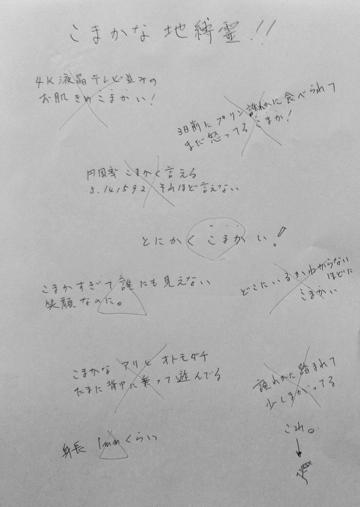 こまかな地縛霊!!
4K液晶テレビ並みの
お肌きめこまかい!
3日前にプリン誰かに食べられて
まだ怒ってる こまか!
円周率 こまかく言える
3.141592 それほど言えない
とにかく こまかい!
こまかすぎて誰にも見えない
笑顔なのに。
どこにいるかわからない
ほどに
こまかい
こまかな アリとオトモダチ
たまに背中に乗って遊んでる
誰かに踏まれて
少しまがってる
これ。
身長 1mmくらい